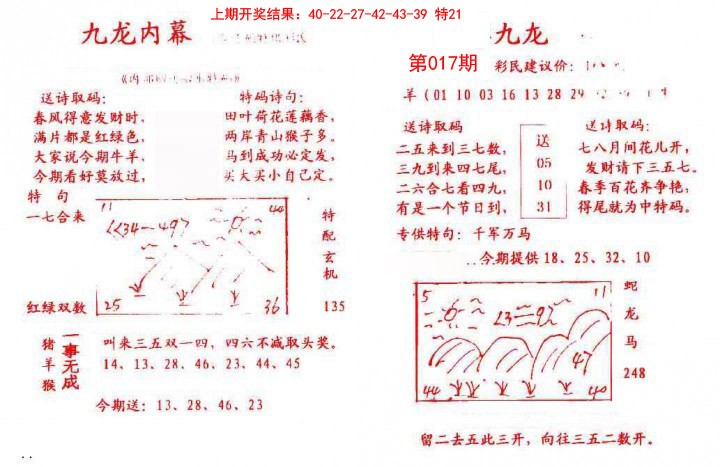 上期开奖结果：40-22-27-42-43-39 特21
九龙内幕
送诗取码：
春风得意发财时，
满片都是红绿色，
大家说今期牛羊，
今期看好莫放过，
特码诗句：
田叶荷花莲藕香，
两岸青山猴子多。
马到成功必定发，
买大买小自己定。
特 句
一七合来
红绿双数
11
44
25
36
特配玄机
135
猪羊猴
一事无成
叫来三五双一四，四六不减取头奖。
14、13、28、46、23、44、45
今期送：13、28、46、23
九龙
第017期
彩民建议价：
羊（01 10 03 16 13 28 29
送诗取码
二五来到三七数，
三九到来四七尾，
二六合七看四九，
有是一个节日到，
送
05
10
31
送诗取码：
七八月间花儿开，
发财请下三五七。
春季百花齐争艳，
得尾就为中特码。
专供特句：千军万马
今期提供18、25、32、10
5
11
47
44
40
蛇龙马
248
留二去五此三开，向往三五二数开。